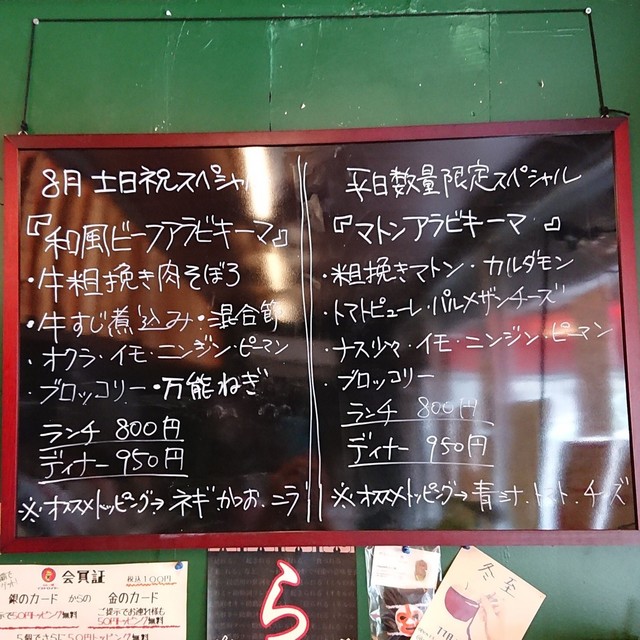 8月 土日祝スペシャル
『和風ビーフアラビキーマ』
・牛粗挽き肉そぼろ
・牛すじ煮込み・混合節
・オクラ・イモ・ニンジン・ピーマン
・ブロッコリー・万能ねぎ
ランチ 800円
ディナー 950円
※オススメトッピング→ネギかつお、ニラ
平日数量限定スペシャル
『マトンアラビキーマ』
・粗挽きマトン・カルダモン
・トマトピューレ・パルメザンチーズ
・ナス・イモ・ニンジン・ピーマン
・ブロッコリー
ランチ 800円
ディナー 950円
※オススメトッピング→青ネギ、トマト、チーズ
会員証 税込100円
銀のカード からの 金のカード
で50円トッピング無料 ご提示でお連れ様も50円トッピング無料
5個でさらに50円トッピング
ら
冬至